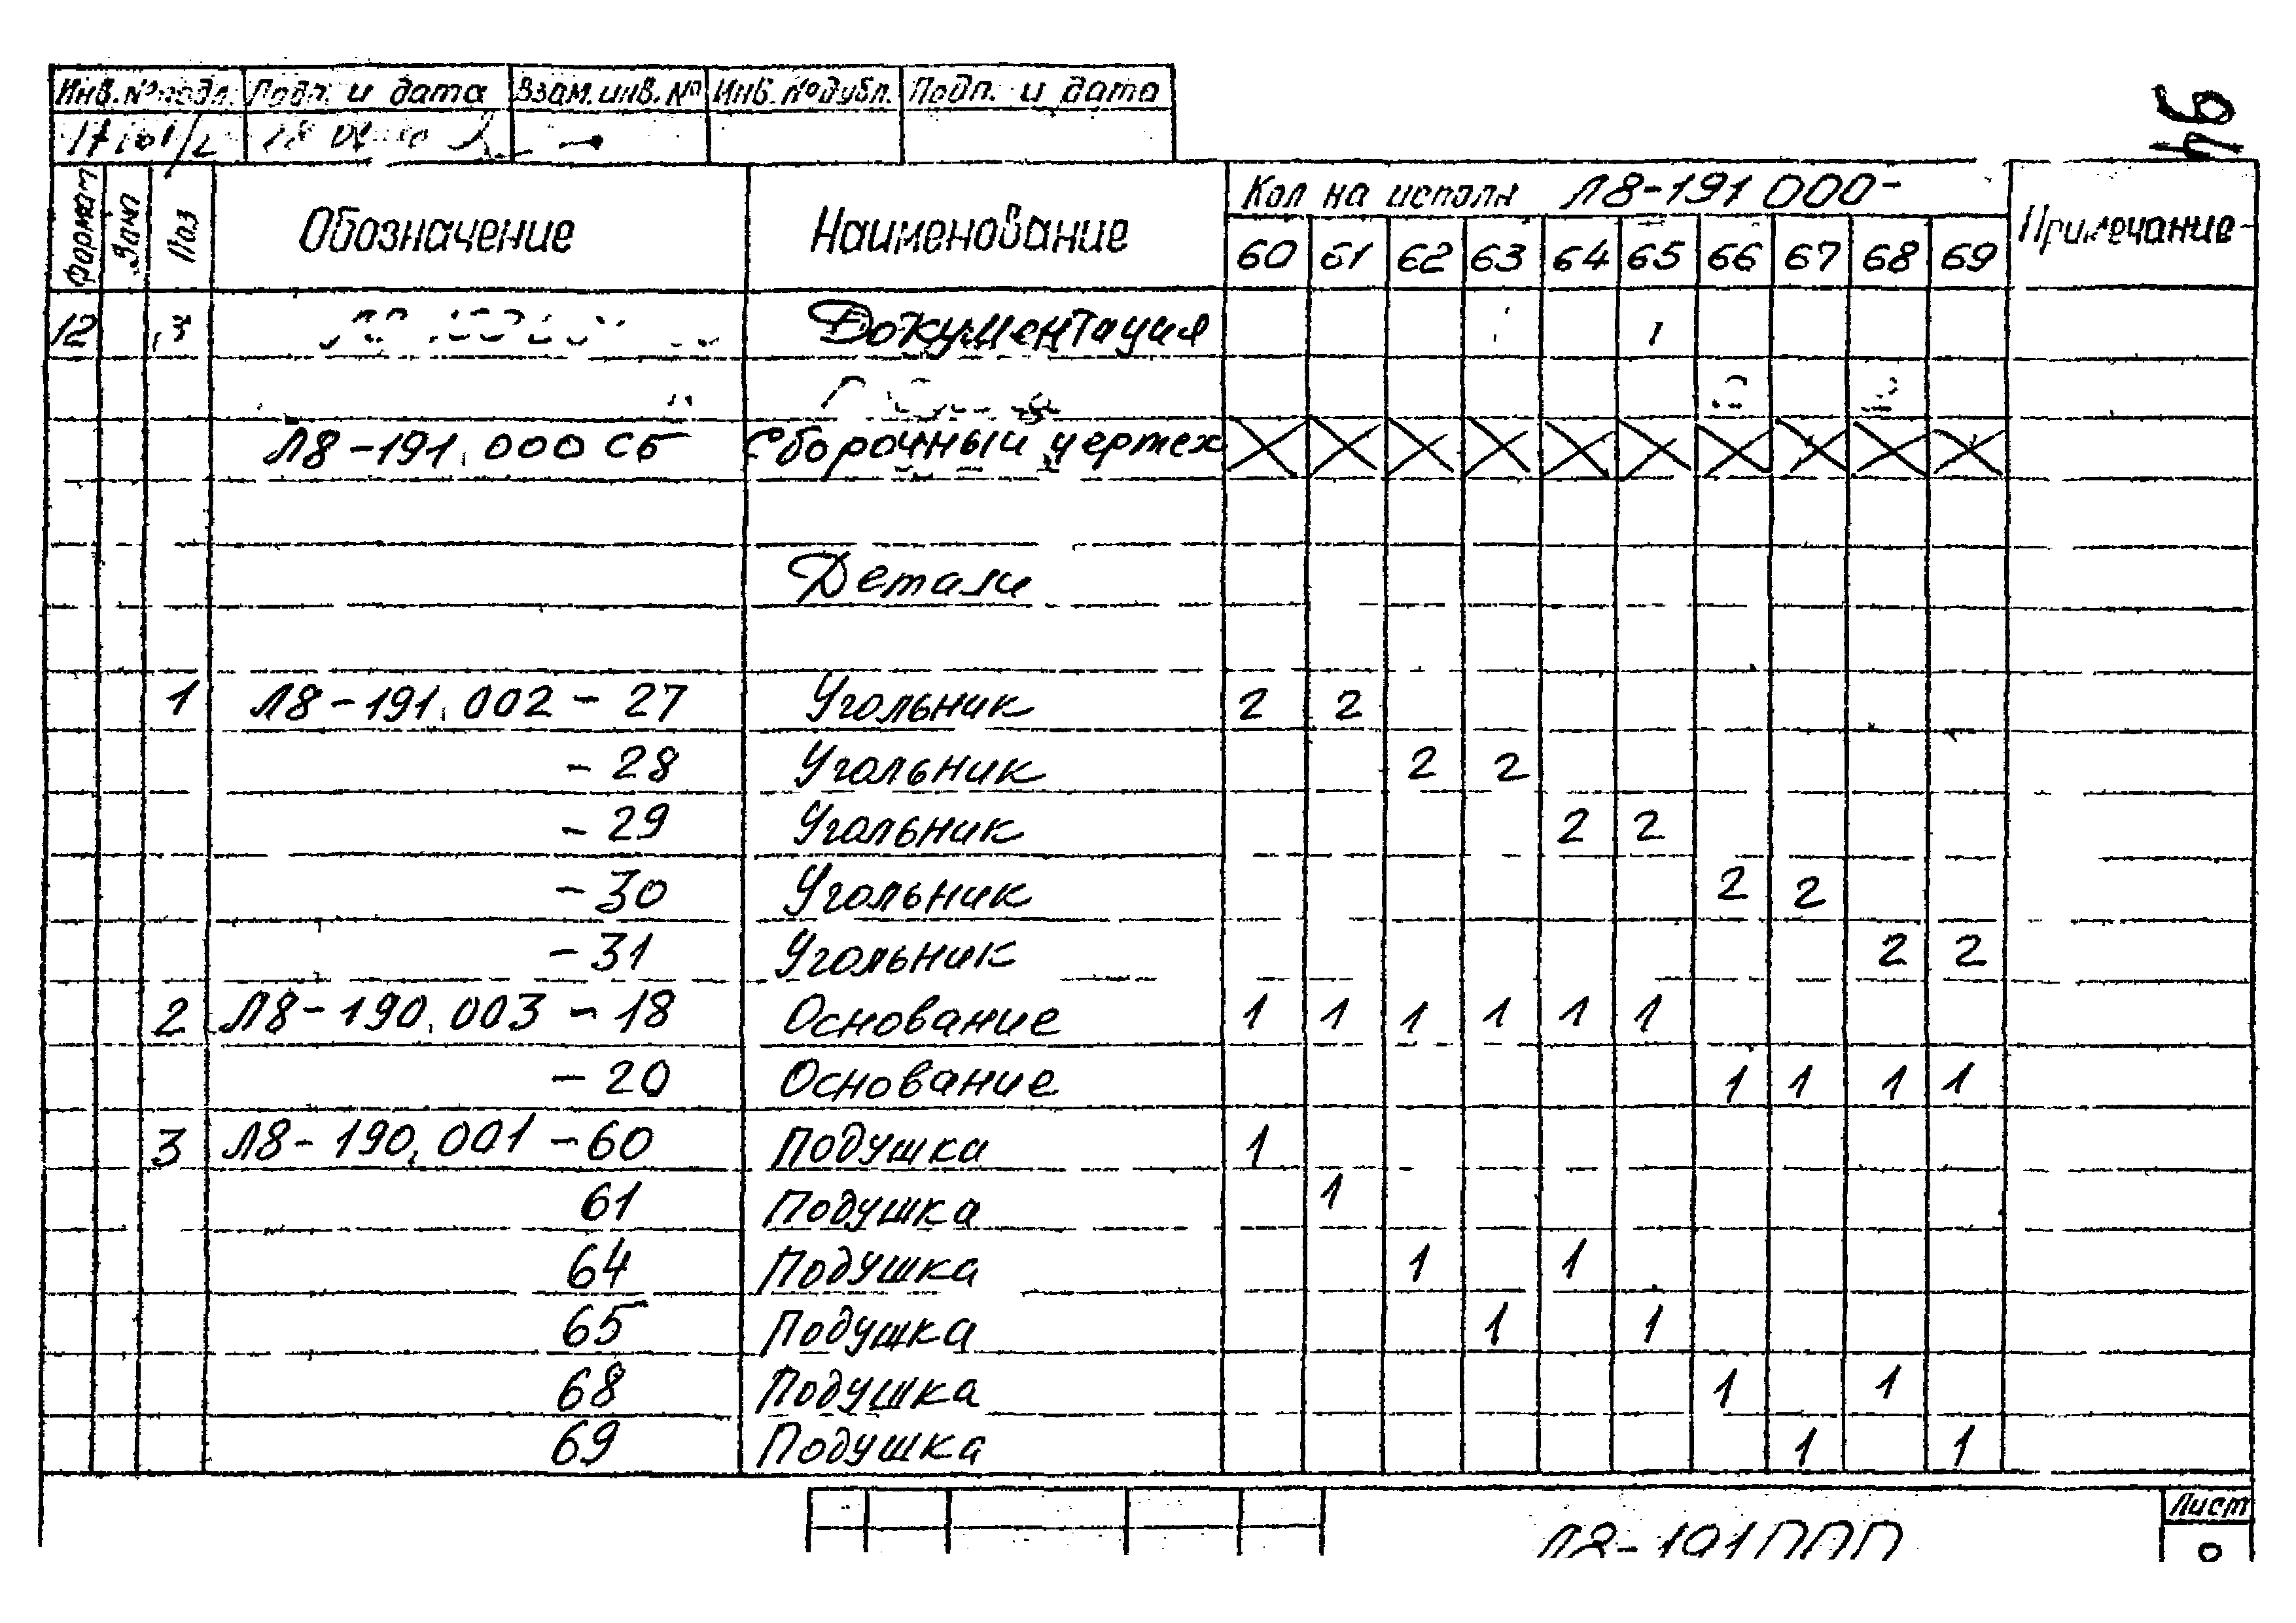 46
Инв. № подл. Подп. и дата Взам. инв. № Инв. № дубл. Подп. и дата
Формат Зона Поз Обозначение Наименование Кол на исполн Л8-191 000- Примечание
60 61 62 63 64 65 66 67 68 69
12 3 Документация
Л8-191.000 СБ Сборочный чертеж
Детали
1 Л8-191.002 - 27 Угольник 2 2
- 28 Угольник 2 2
- 29 Угольник 2 2
- 30 Угольник 2 2
- 31 Угольник 2 2
2 Л8-190.003 - 18 Основание 1 1 1 1 1 1
- 20 Основание 1 1 1 1
3 Л8-190.001 - 60 Подушка 1
61 Подушка 1
64 Подушка 1 1
65 Подушка 1 1
68 Подушка 1 1
69 Подушка 1 1
Лист
Л8-191 000